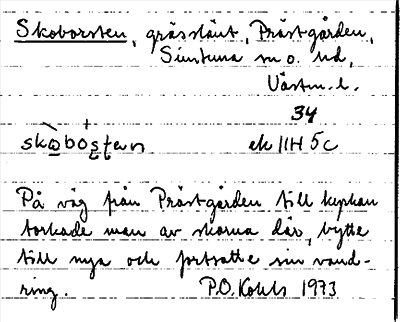 Skoborsten, grässlänt, Prästgården,
Simtuna sn o. hd,
Västm. l.
34
skobostan
ek 11H 5c
På väg från Prästgården till kyrkan
torkade man av skorna där, bytte
till nya och fortsatte sin vand-
ring. P.O. Kohls 1973